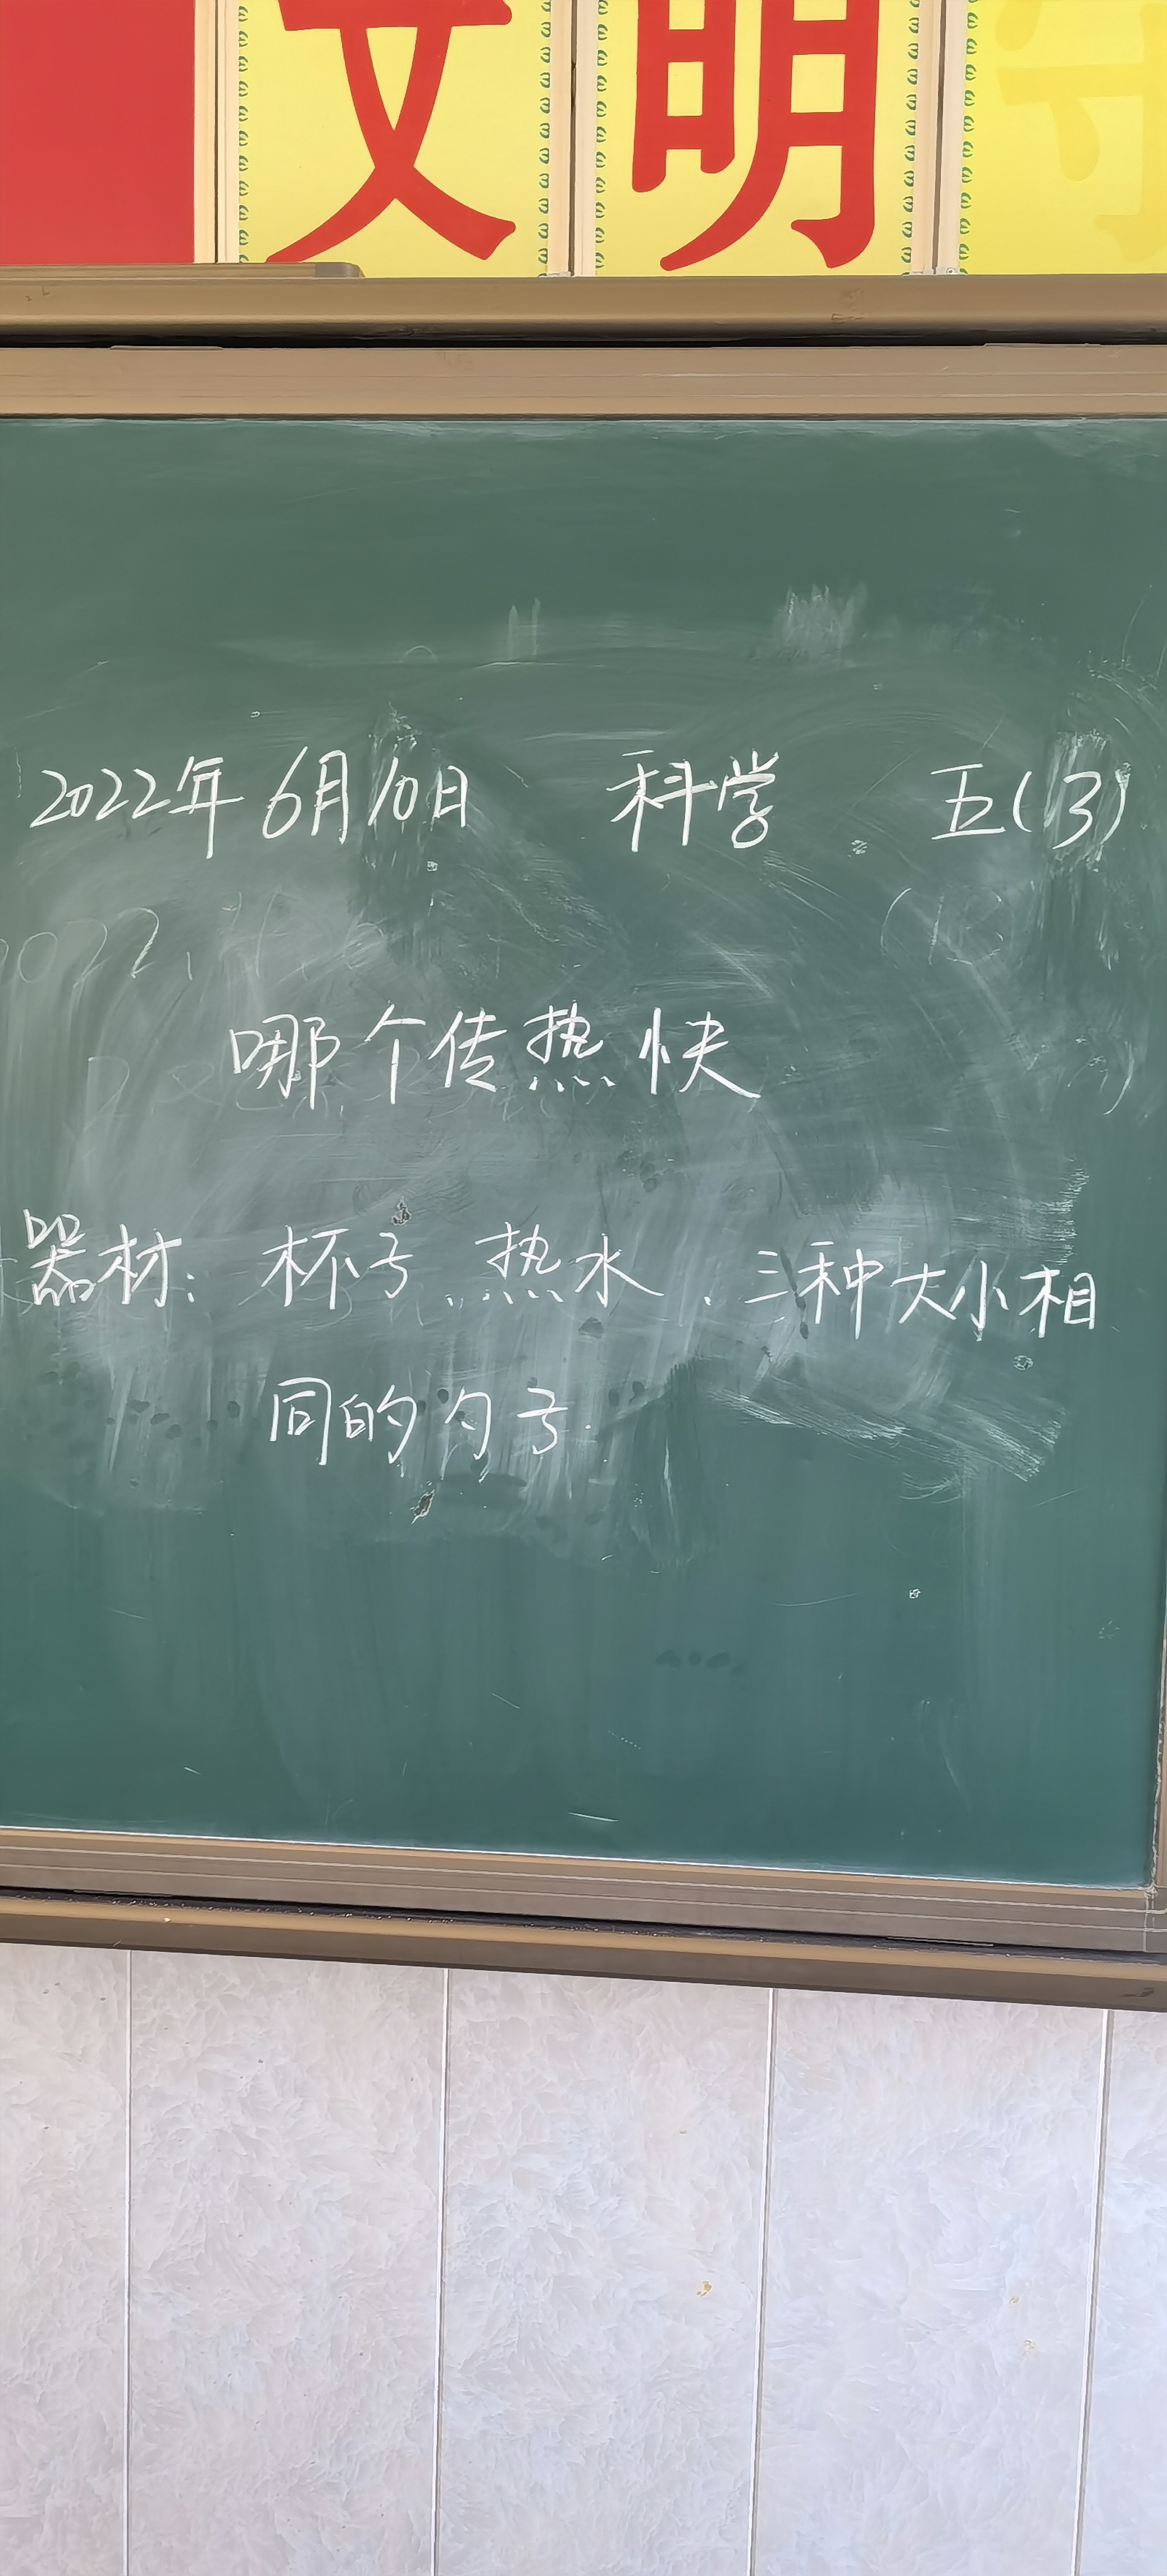 文明
2022年6月10日 科学 五(3)
哪个传热快
器材: 杯子、热水、三种大小相
同的勺子.